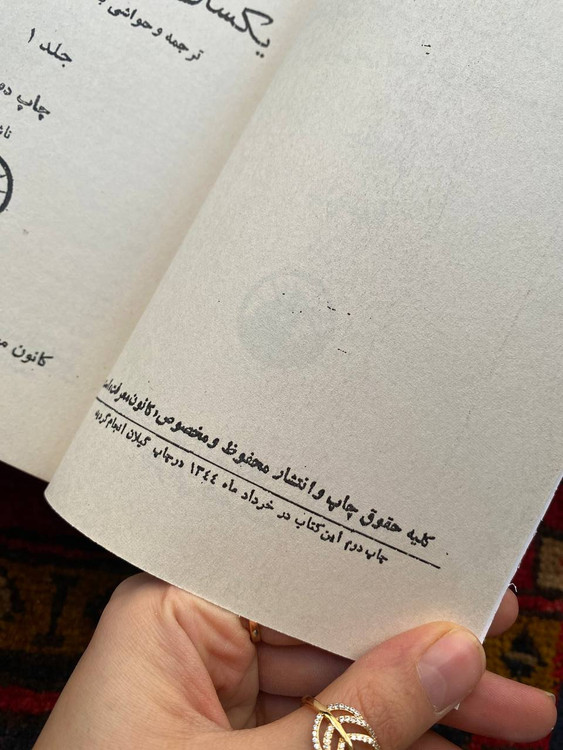 ترجمه و حواشی
جلد ۱
چاپ
کانون
کلیه حقوق چاپ و انتشار محفوظ و مخصوص «کانون معرفت» است
چاپ دوم این کتاب در خرداد ماه ۱۳۴۴ در چاپ گیلان انجام گردید